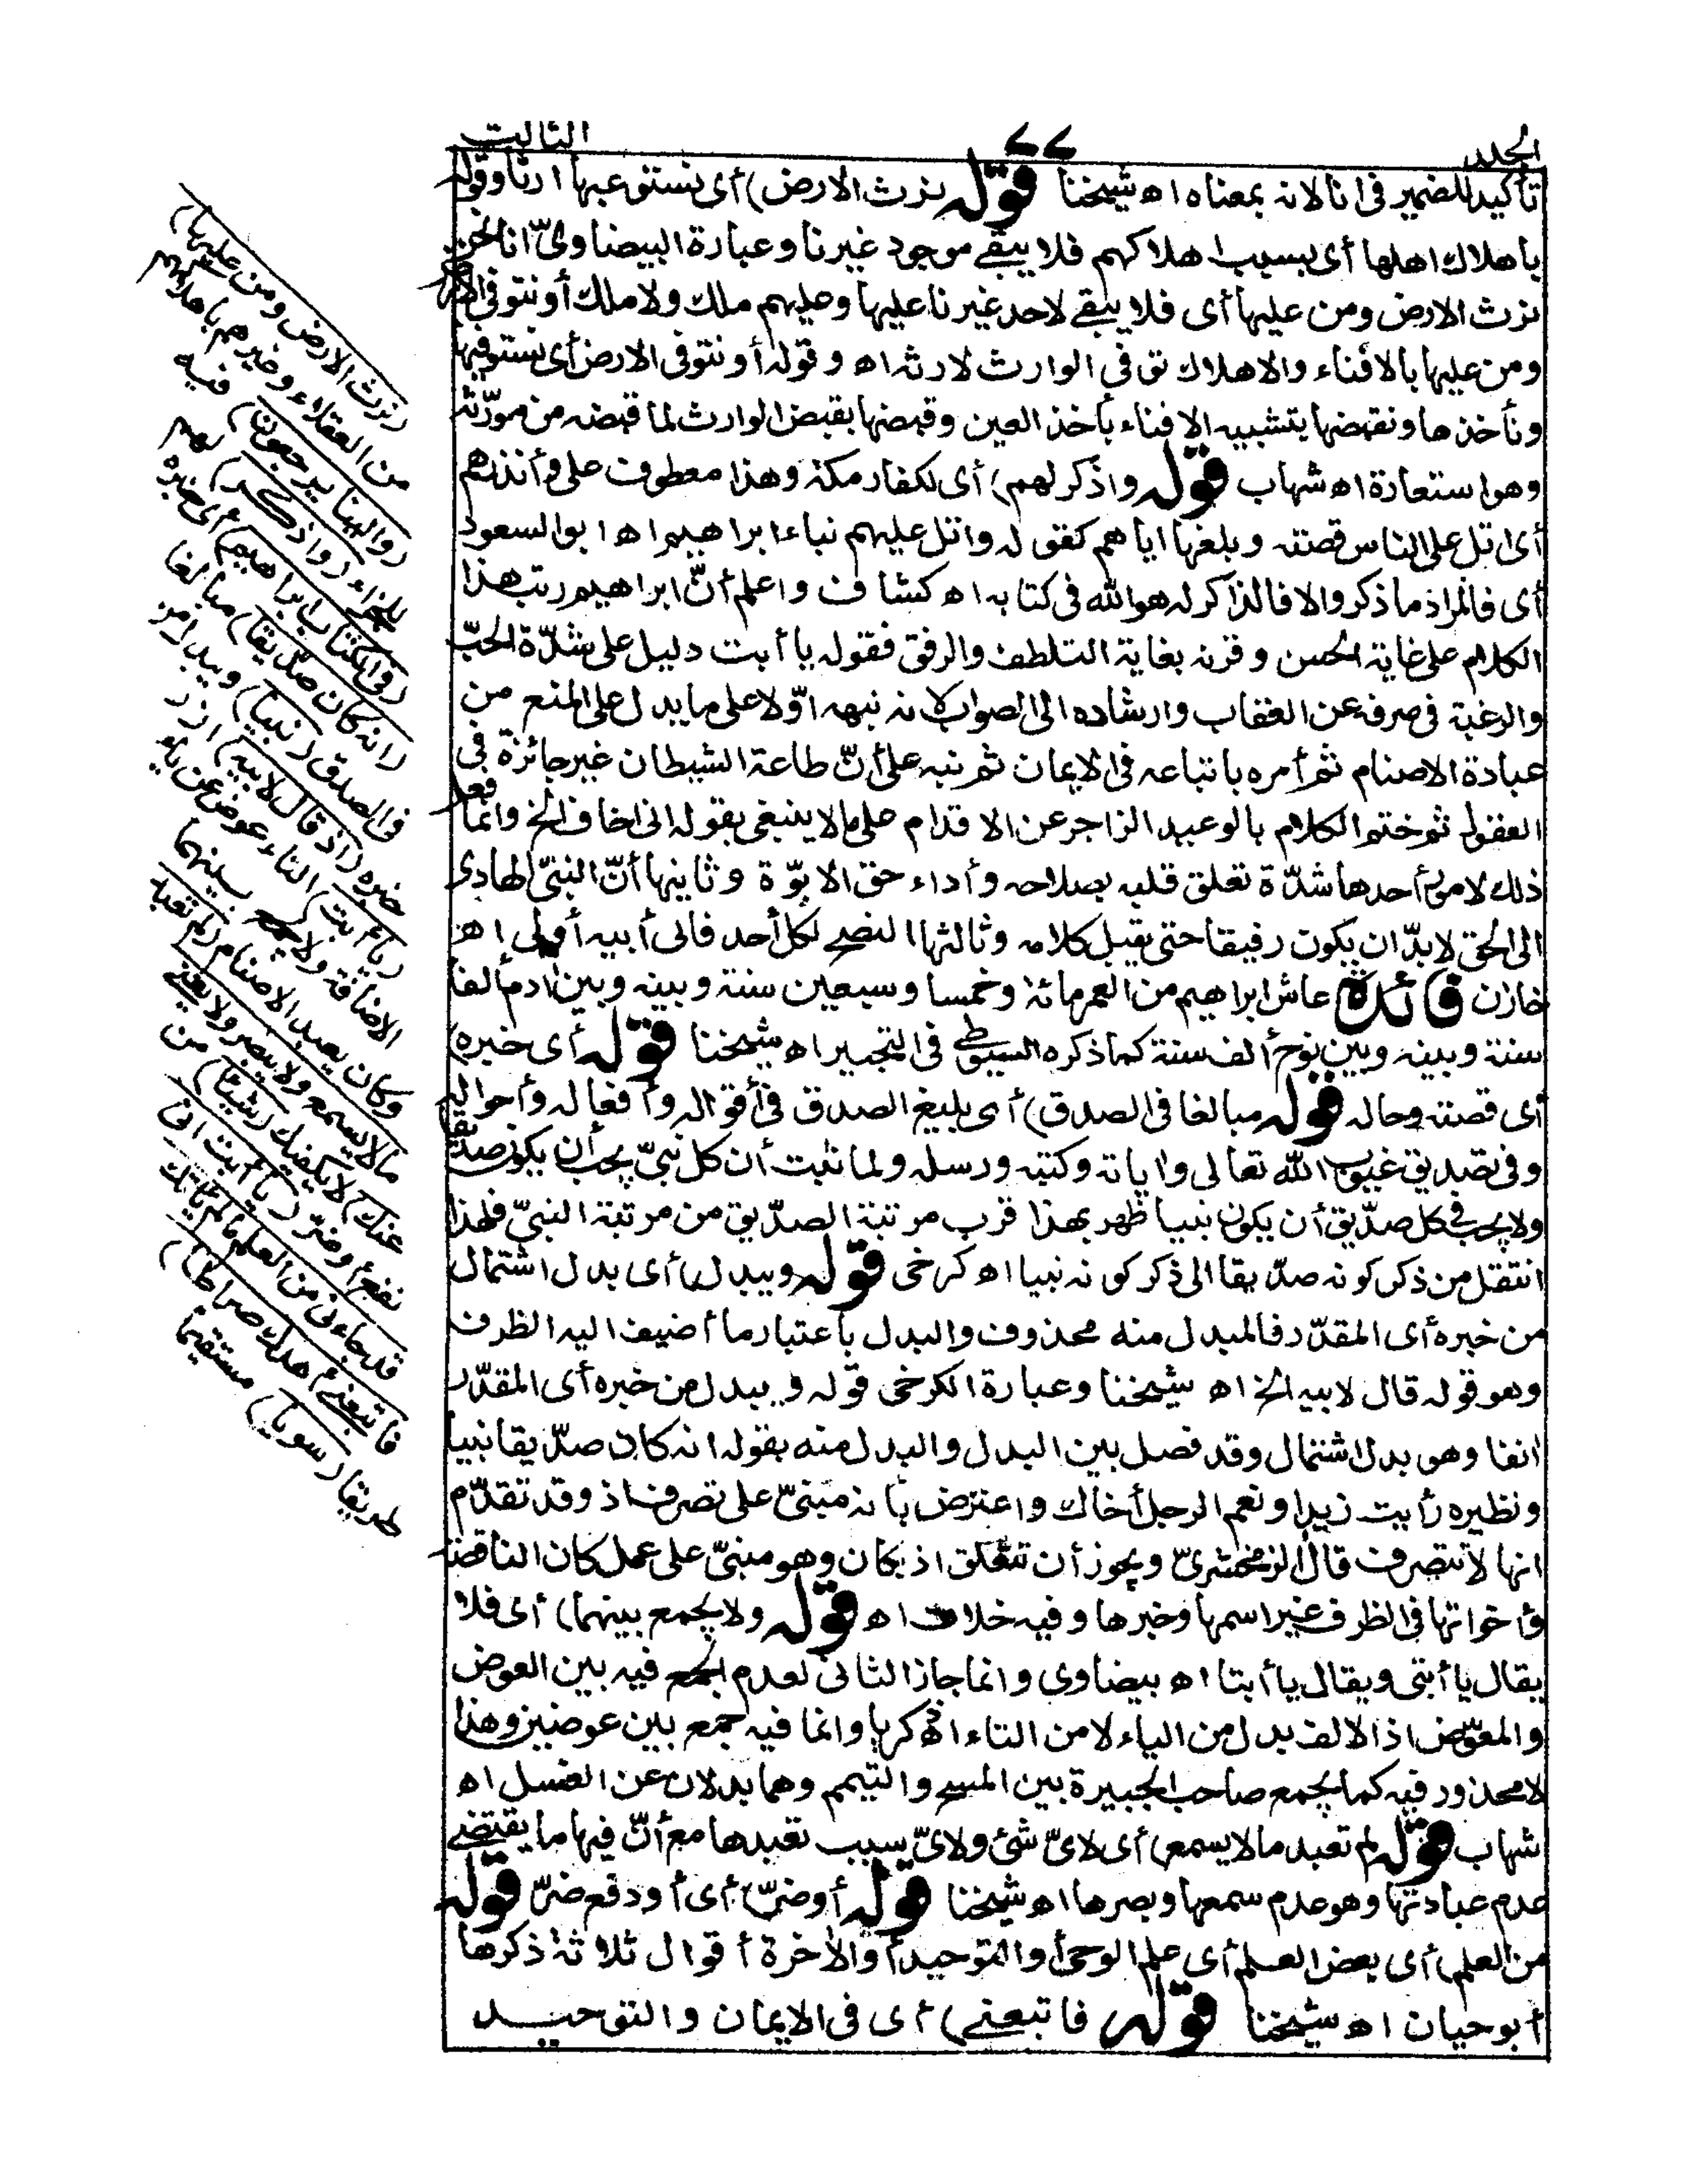 الجلد ٧٧ الثالث
تأكيد للضمير فى انا لانه بمعناه اه شيخنا قوله نرث الارض) أى نستوعبها ارثا وقوله
باهلاك اهلها أى بسبب اهلاكهم فلا يبقے موجود غيرنا وعبارة البيضاوىّ انا نحن
نرث الارض ومن عليها أى فلا يبقے لاحد غيرنا عليها وعليهم ملك ولا ملك أو نتوفى الارض
ومن عليها بالافناء والاهلاك توفى الوارث لارثه اه وقوله أو نتوفى الارض أى نستوفيها
ونأخذها ونقبضها بتشبيه الافناء بأخذ العين وقبضها بقبض الوارث لما قبضه من مورّثه
وهو استعارة اه شهاب قوله واذكر لهم) أى لكفار مكة وهذا معطوف على وأنذرهم
أى اتل على الناس قصته وبلغها اياهم كقوله واتل عليهم نباء ابراهيم اه ابو السعود
أى فالمراذ ما ذكر والا فالذاكر له هو الله فى كتابه اه كشاف واعلم أنّ ابراهيم رتب هذا
الكلام على غاية الحسن وقرنه بغاية التلطف والرفق فقوله يا أبت دليل على شدّة الحبّ
والرغبة فى صرفه عن العقاب وارشاده الى الصواب لانه نبهه اوّلا على ما يدل على المنع من
عبادة الاصنام ثم أمره باتباعه فى الايمان ثم نبه على أنّ طاعة الشيطان غير جائزة فى
العقول ثم ختم الكلام بالوعيد الزاجر عن الاقدام على ما لا ينبغى بقوله انى اخاف الخ وانما فعل
ذلك لامور أحدها شدّة تعلق قلبه بصلاحه وأداء حق الابوّة وثانيها أنّ النبىّ الهادى
الى الحق لا بدّ ان يكون رفيقا حتى يقبل كلامه وثالثها النصح لكل أحد فالى أبيه أولى اه
خازن فائدة عاش ابراهيم من العمر مائة وخمسا وسبعين سنة وبينه وبين ادم ألفا
سنة وبينه وبين نوح ألف سنة كما ذكره السيوطى فى التحبير اه شيخنا قوله أى خبره)
أى قصته وحاله قوله مبالغا فى الصدق) أى بليغ الصدق فى أقواله وأفعاله وأحواله
وفى تصديق غيوب الله تعالى واياته وكتبه ورسله ولما ثبت أن كل نبىّ يجب أن يكون صدّيقا
ولا يجب فى كل صدّيق أن يكون نبيا ظهر بهذا قرب مرتبة الصدّيق من مرتبة النبىّ فلهذا
انتقل من ذكر كونه صدّيقا الى ذكر كونه نبيا اه كرخى قوله ويبدل) أى بدل اشتمال
من خبره أى المقدّر فالمبدل منه محذوف والبدل باعتبار ما أضيف اليه الظرف
وهو قوله قال لابيه الخ اه شيخنا وعبارة الكرخى قوله ويبدل من خبره أى المقدّر
انفا وهو بدل اشتمال وقد فصل بين البدل والبدل منه بقوله انه كان صدّيقا نبيا
ونظيره رأيت زيدا ونعم الرجل أخاك واعترض بأنه مبنىّ على تصرف اذ وقد تقدّم
انها لا تتصرف قال الزمخشرىّ ويجوز أن تتعلق اذ بكان وهو مبنىّ على عمل كان الناقصة
وأخواتها فى الظرف غير اسمها وخبرها وفيه خلاف اه قوله ولا يجمع بينهما) أى فلا
يقال يا أبتى ويقال يا أبتا اه بيضاوى وانما جاز الثانى لعدم الجمع فيه بين العوض
والمعوّض اذ الالف بدل من الياء لا من التاء اه زكريا وانما فيه جمع بين عوضين وهذا
لا محذور فيه كما يجمع صاحب الجبيرة بين المسح والتيمم وهما بدلان عن الغسل اه
شهاب قوله لم تعبد ما لا يسمع) أى لاىّ شئ ولاىّ سبب تعبدها مع أنّ فيها ما يقتضے
عدم عبادتها وهو عدم سمعها وبصرها اه شيخنا قوله أو ضرّ) أى أو دفع ضرّ قوله
من العلم) أى بعض العلم أى علم الوحى أو التوحيد أو الاخرة أقوال ثلاثة ذكرها
أبو حيان اه شيخنا قوله فاتبعنے) أى فى الايمان والتوحيد
(نرث الارض ومن عليها)
من العقلاء وغيرهم باهلاكهم
(والينا يرجعون) فيه
للجزاء (واذكر) لهم
(فى الكتاب ابراهيم) أى خبره
(انه كان صدّيقا) مبالغا
فى الصدق (نبيا) ويبدل من
خبره (اذ قال لابيه) ازر
(يا أبت) التاء عوض عن ياء
الاضافة ولا يجمع بينهما
وكان يعبد الاصنام (لم تعبد
ما لا يسمع ولا يبصر ولا يغنے
عنك) لا يكفيك (شيئا) من
نفع أو ضرّ (يا أبت انى
قد جاءنى من العلم ما لم يأتك
فاتبعنے أهدك صراطا)
طريقا (سويا) مستقيما